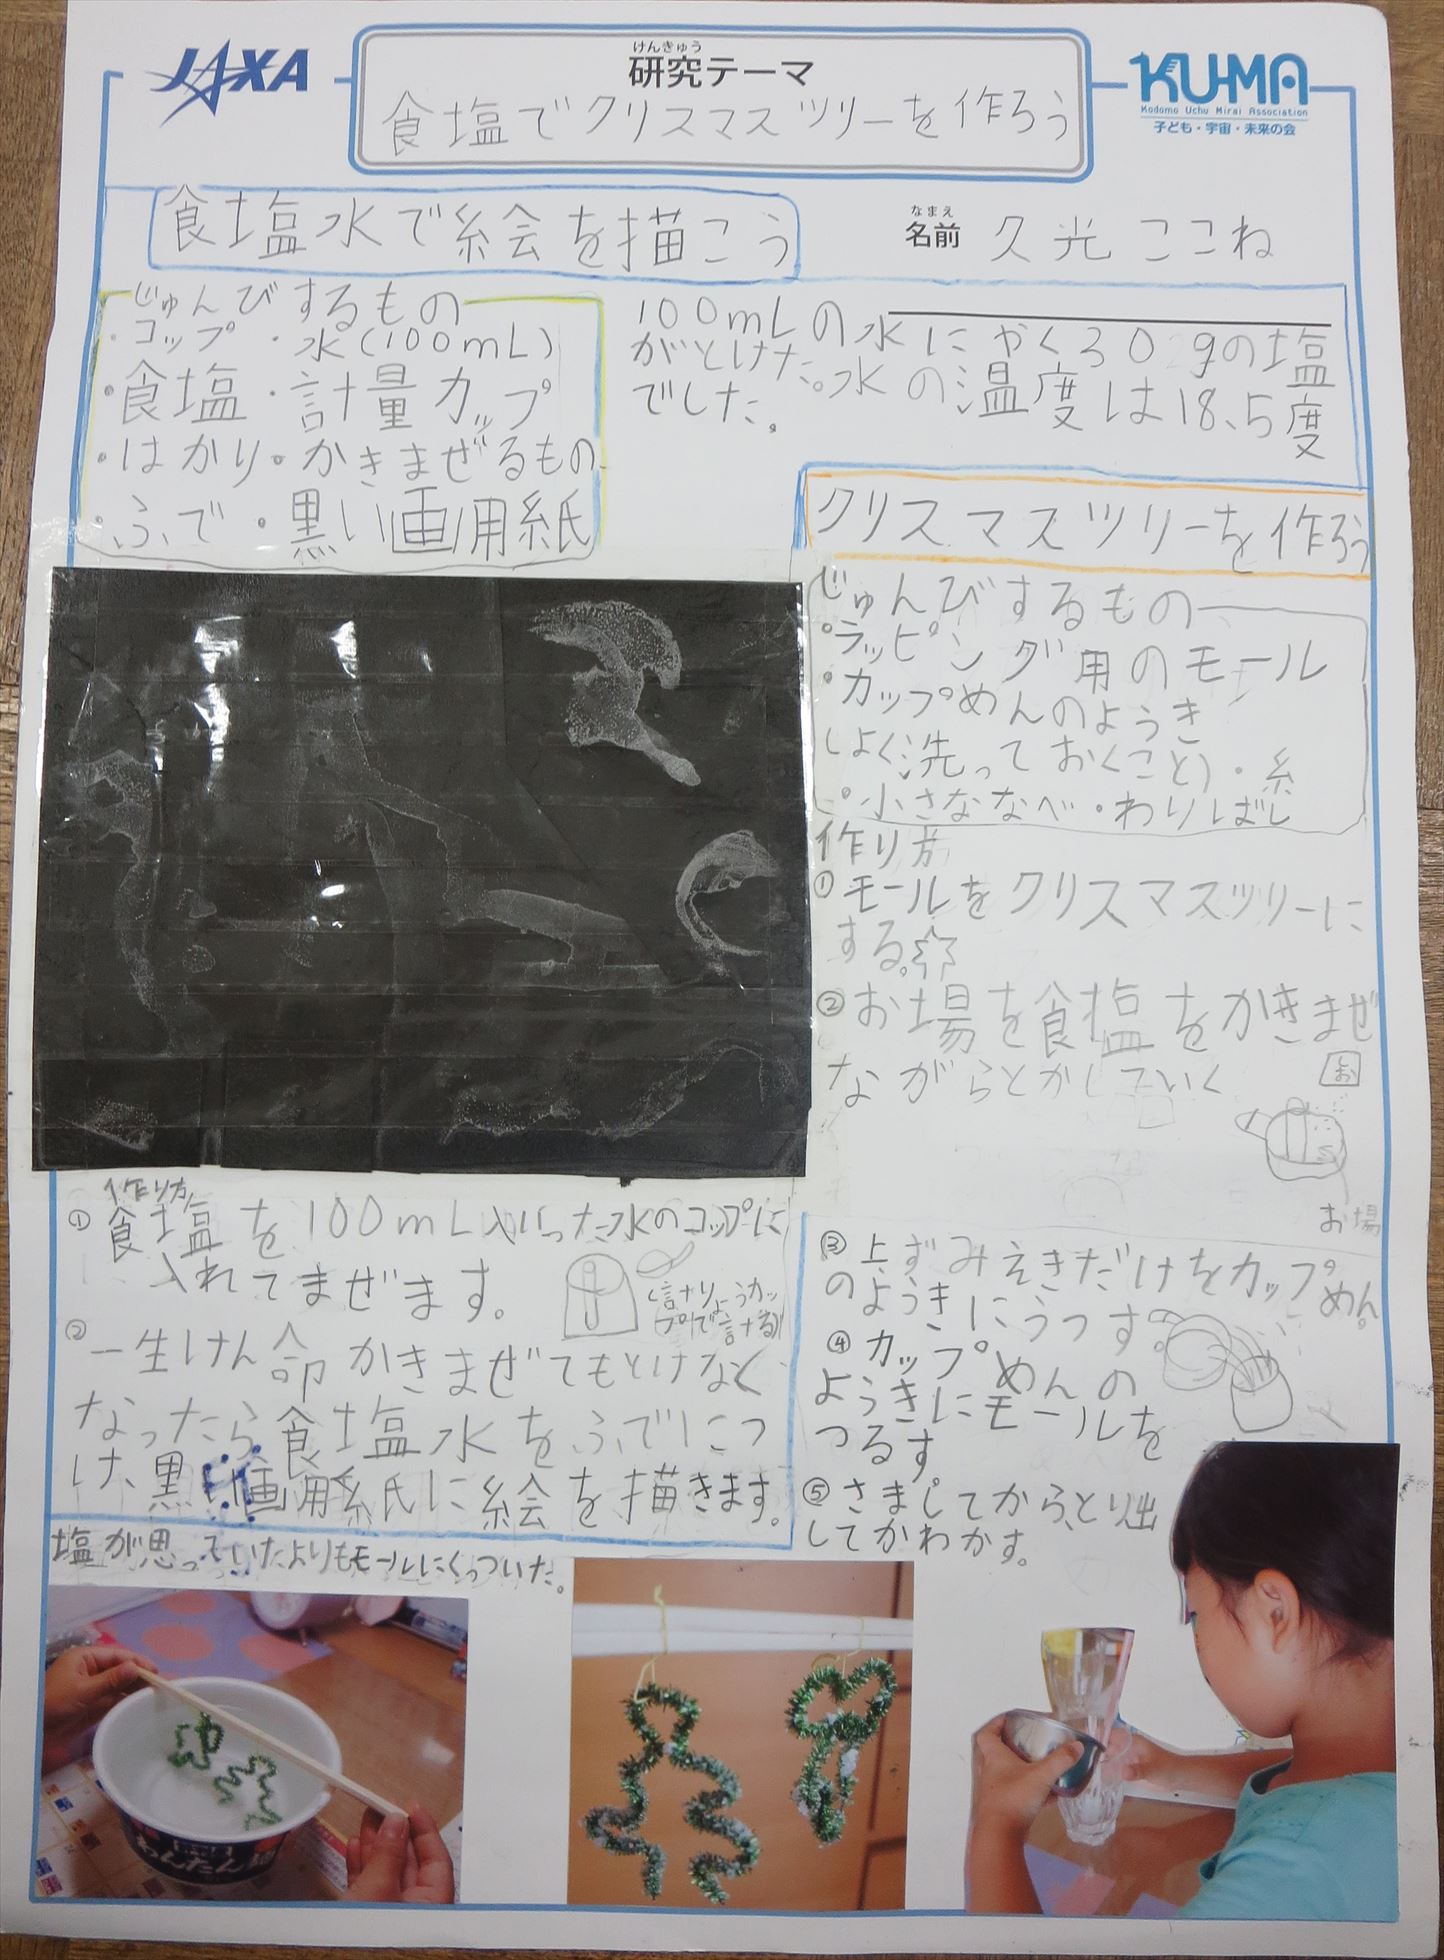 JAXA
けんきゅう
研究テーマ
食塩でクリスマスツリーを作ろう
KU-MA
Kodomo Uchu Mirai Association
子ども・宇宙・未来の会
食塩水で絵を描こう
なまえ
名前 久光ここね
じゅんびするもの
・コップ ・水(100mL)
・食塩・計量カップ
・はかり・かきまぜるもの
・ふで・黒い画用紙
100mLの水にやく30gの塩
がとけた。水の温度は18.5度
でした。
クリスマスツリーを作ろう
じゅんびするもの
・ラッピング用のモール
・カップめんのようき
(よく洗っておくこと)・糸
・小さななべ・わりばし
作り方
①モールをクリスマスツリーに
する。
②お場を食塩をかきまぜ
ながらとかしていく
お
お場
③上ずみえきだけをカップめん
のようきにうつす。
④カップめんの
ようきにモールを
つるす
⑤さましてから、とり出
してかわかす。
作り方
①食塩を100mL入った水のコップに
入れてまぜます。
(計りようカッ
プで計る)
②一生けん命かきまぜてもとけなく
なったら食塩水をふでにつ
け、黒い画用紙に絵を描きます。
塩が思っていたよりもモールにくっついた。
わんたん麺